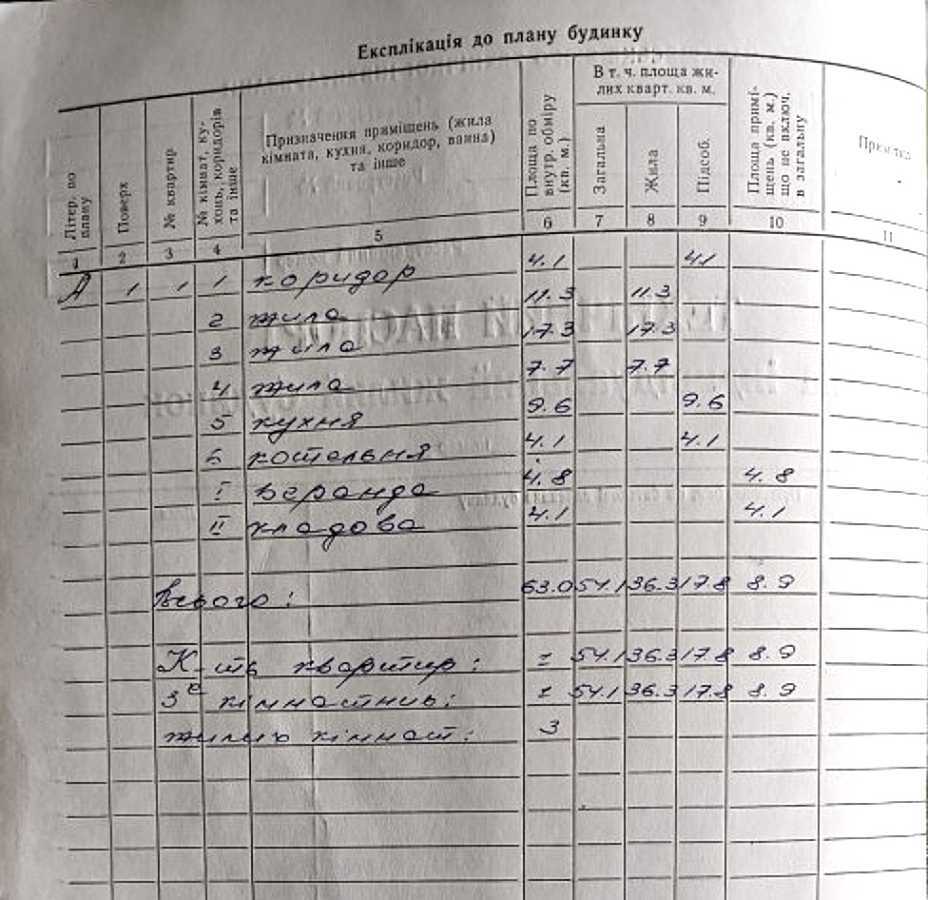 Експлікація до плану будинку
Літер. по плану
Поверх
№ квартир
№ кімнат, кухонь, коридорів та інше
Призначення приміщень (жила кімната, кухня, коридор, ванна) та інше
Площа по внутр. обміру (кв. м.)
В т. ч. площа жилих кварт. кв. м.
Загальна
Жила
Підсоб.
Площа приміщень (кв. м.) що не включ. в загальну
1 2 3 4 5 6 7 8 9 10 11
А 1 1 1 коридор 4.1 4.1
2 жила 11.3 11.3
3 жила 17.3 17.3
4 жила 7.7 7.7
5 кухня 9.6 9.6
6 котельня 4.1 4.1
I веранда 4.8 4.8
II кладова 4.1 4.1
Всього: 63.0 54.1 36.3 17.8 8.9
К-ть квартир: 1 54.1 36.3 17.8 8.9
3х кімнатних: 1 54.1 36.3 17.8 8.9
жилих кімнат: 3